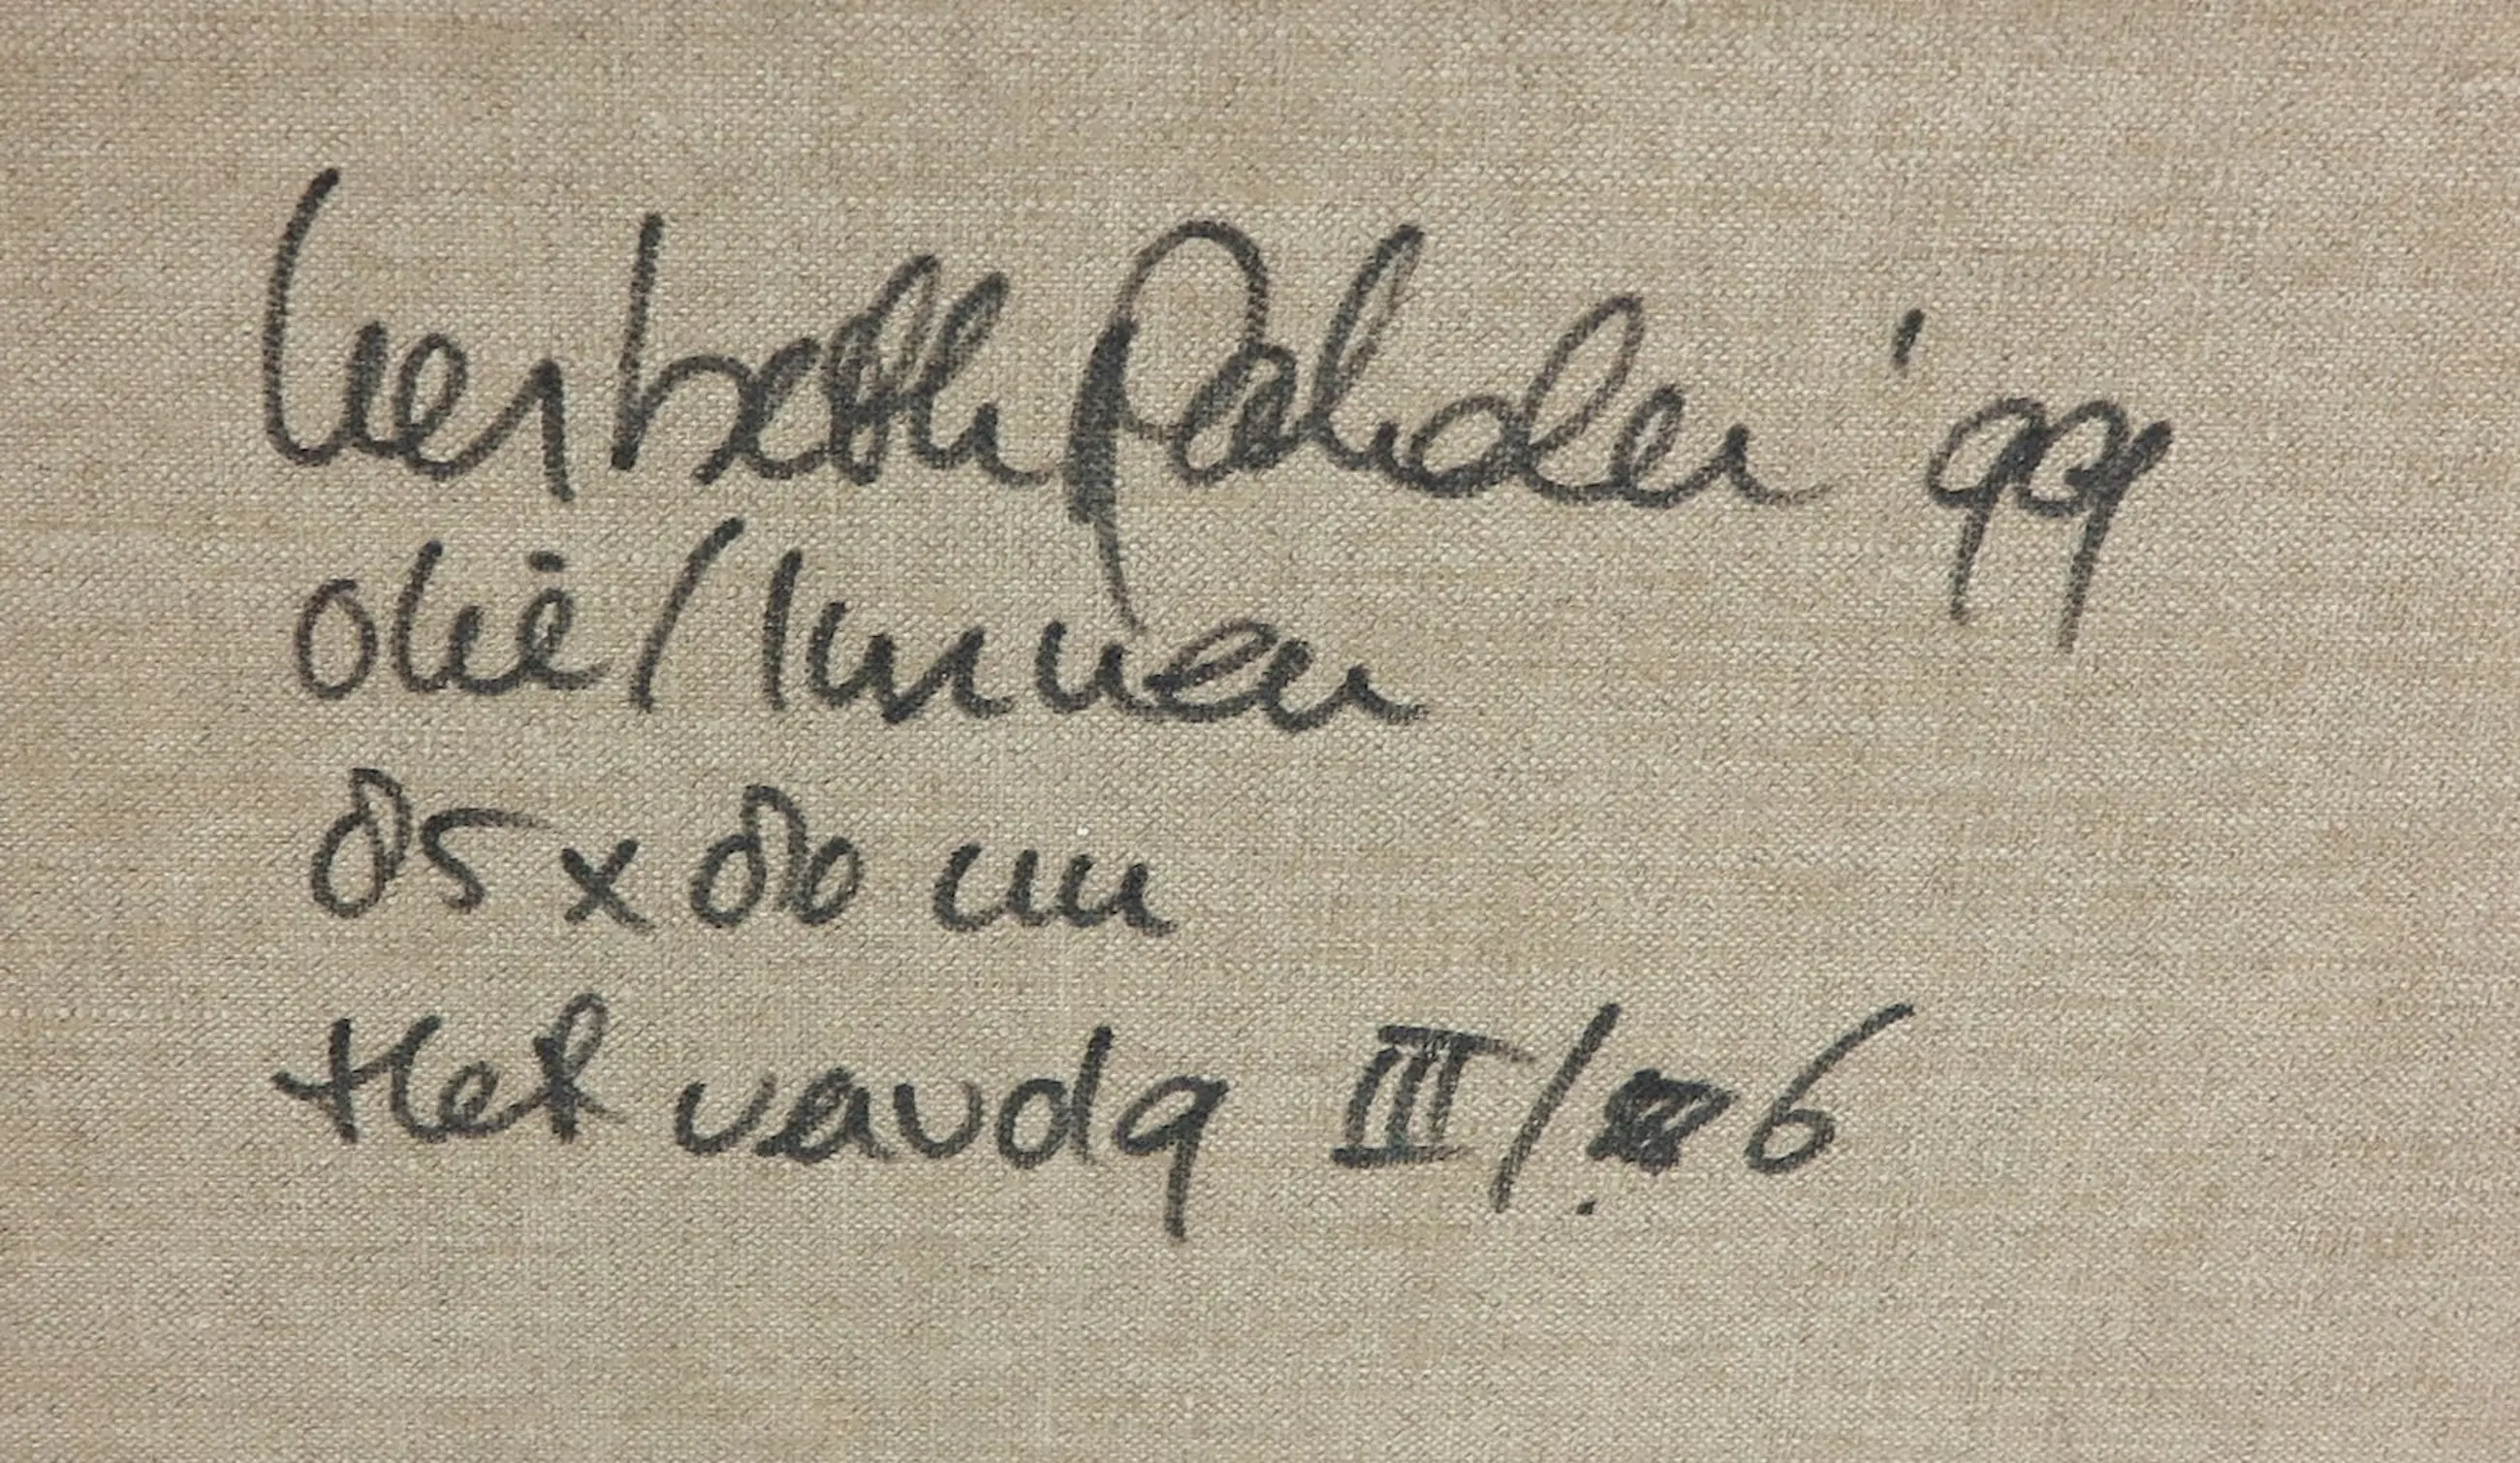 Liesbeth Pahder '99
olie/linnen
85 x 80 cm
Het vavdq III/. 6